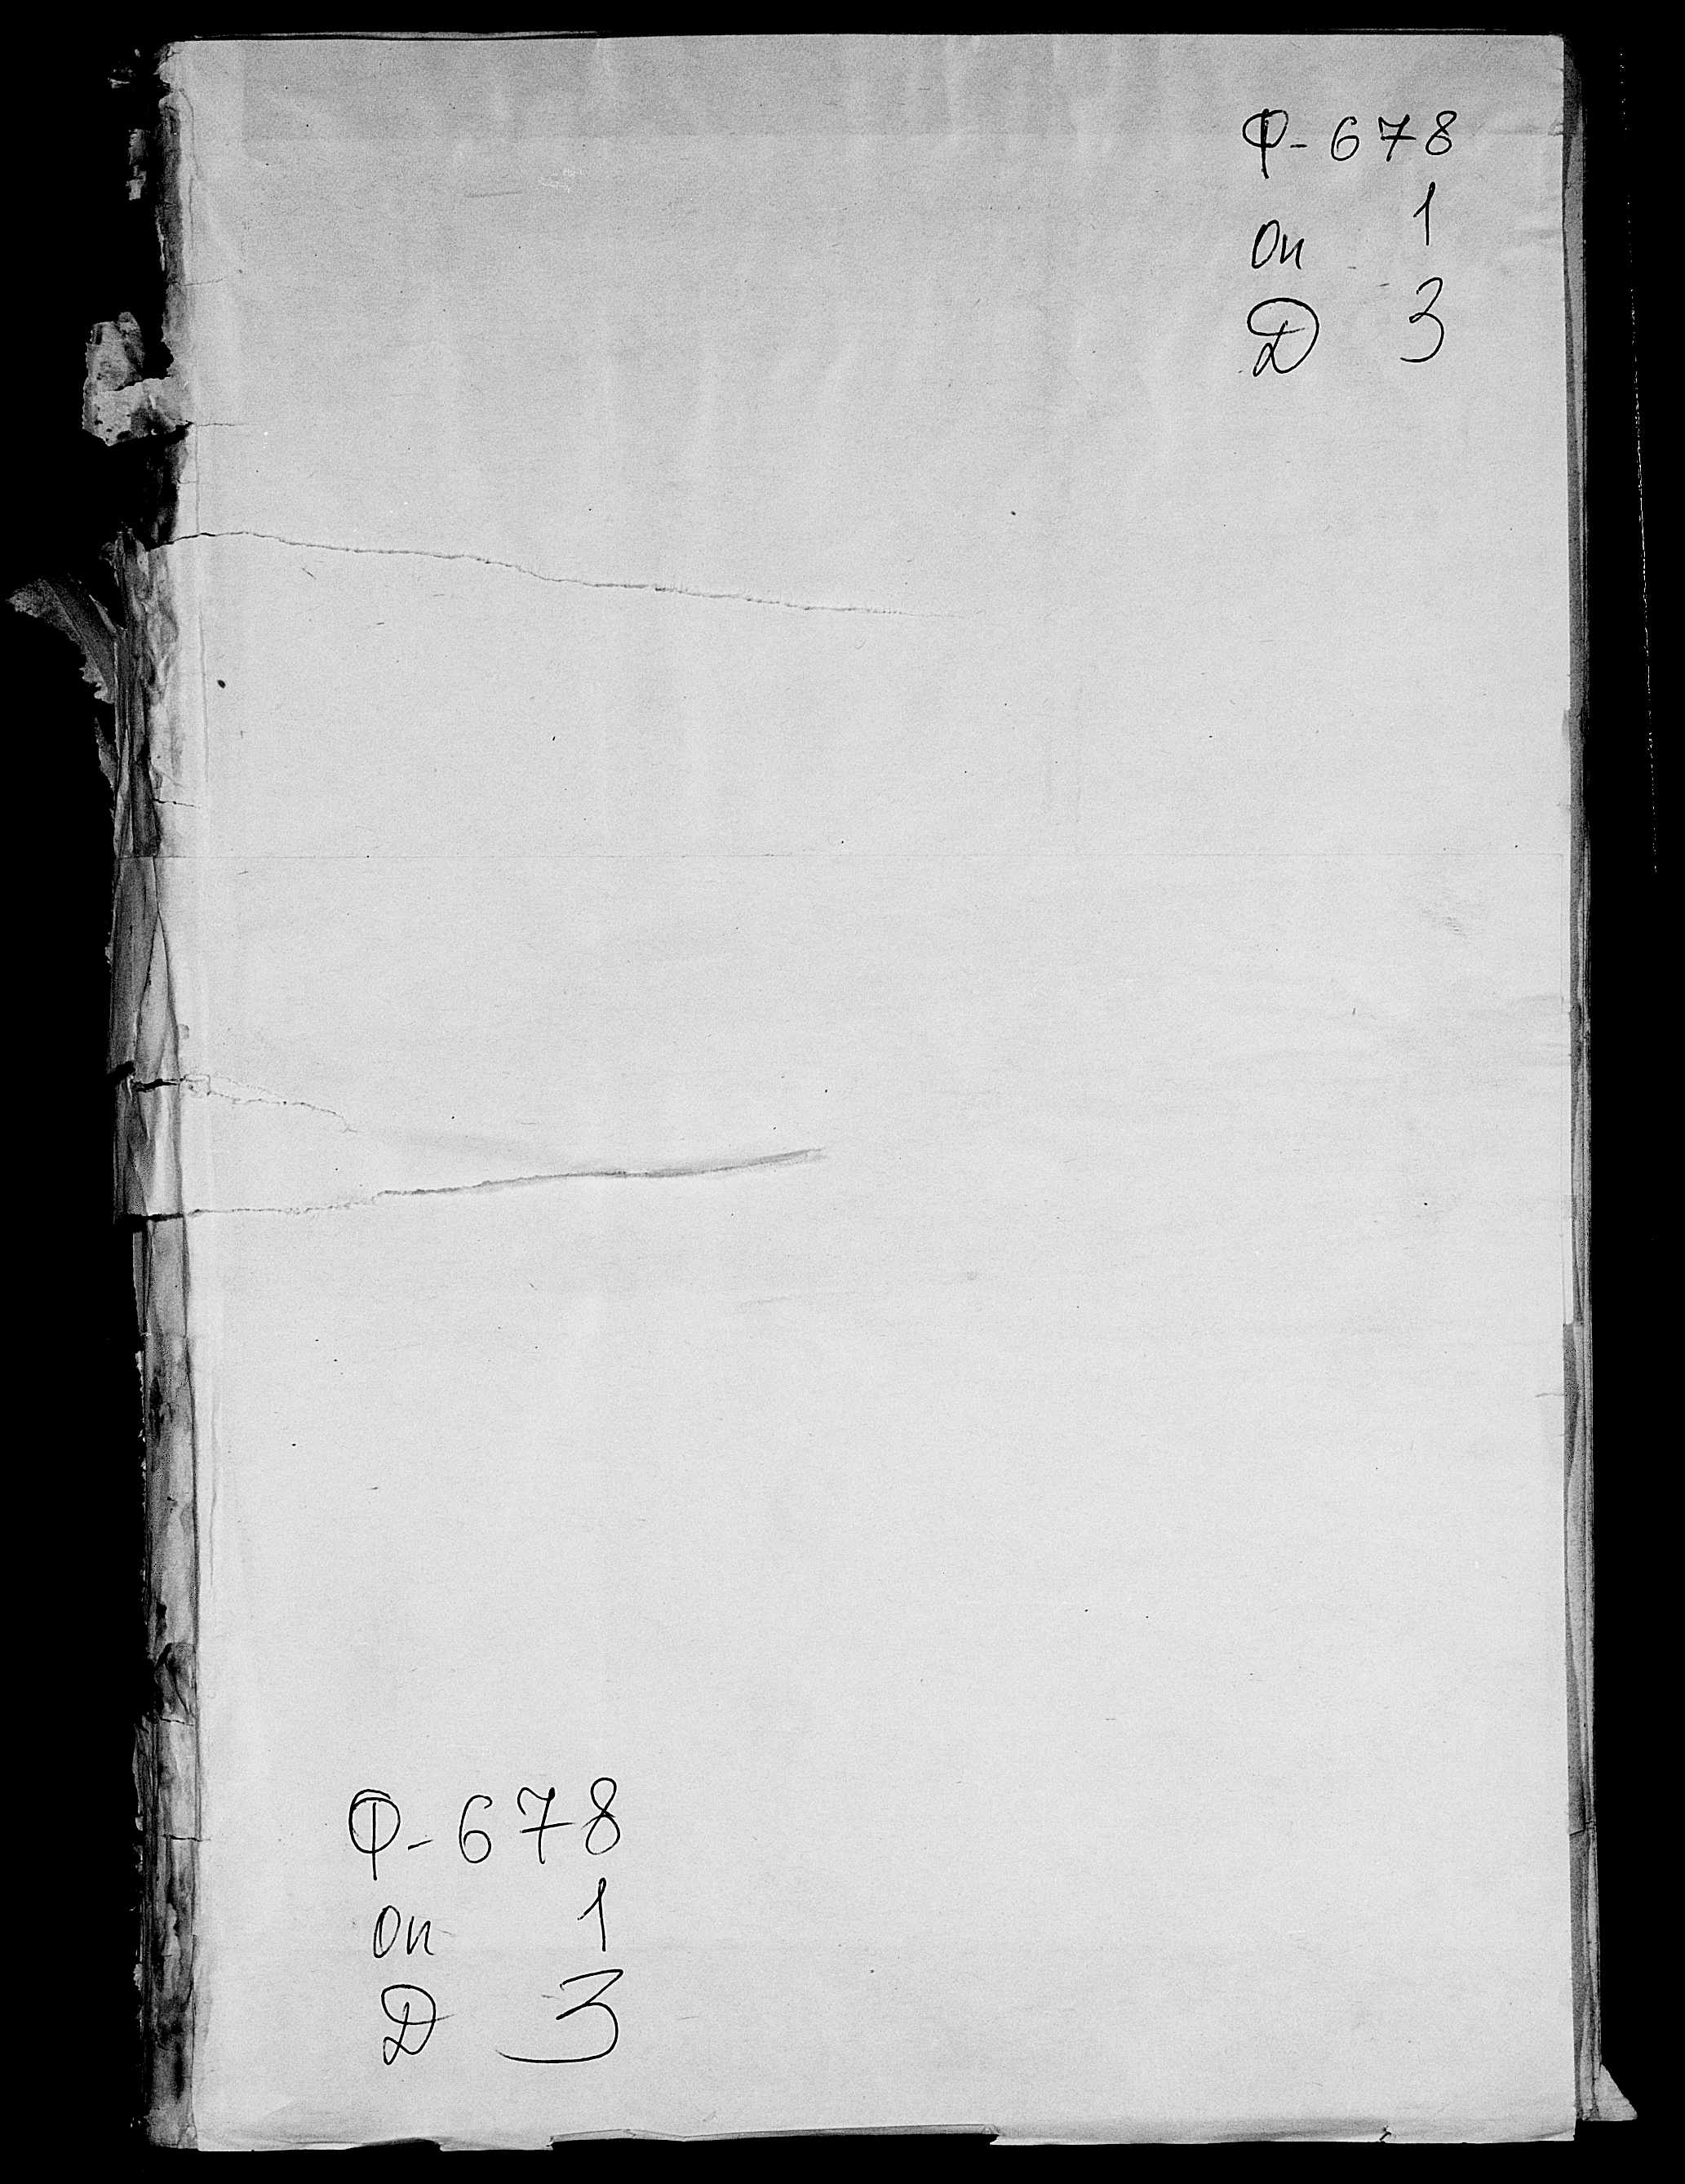 Ф-678
Оп 1
Д 3
Ф-678
Оп 1
Д 3